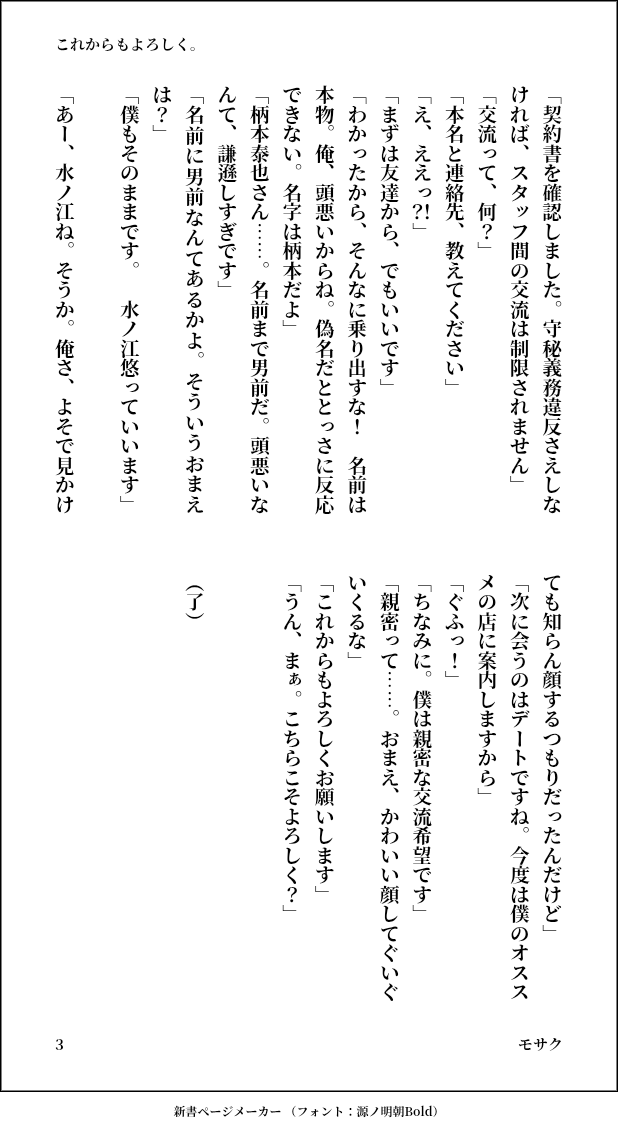 これからもよろしく。
「契約書を確認しました。守秘義務違反さえしな
ければ、スタッフ間の交流は制限されません」
「交流って、何?」
「本名と連絡先、教えてください」
「え、ええっ?!」
「まずは友達から、でもいいです」
「わかったから、そんなに乗り出すな!　名前は
本物。俺、頭悪いからね。偽名だととっさに反応
できない。名字は柄本だよ」
「柄本泰也さん……。名前まで男前だ。頭悪いな
んて、謙遜しすぎです」
「名前に男前なんてあるかよ。そういうおまえ
は?」
「僕もそのままです。　水ノ江悠っていいます」
「あー、水ノ江ね。そうか。俺さ、よそで見かけ
ても知らん顔するつもりだったんだけど」
「次に会うのはデートですね。今度は僕のオスス
メの店に案内しますから」
「ぐふっ!」
「ちなみに。僕は親密な交流希望です」
「親密って……。おまえ、かわいい顔してぐいぐ
いくるな」
「これからもよろしくお願いします」
「うん、まぁ。こちらこそよろしく?」
(了)
3
モサク
新書ページメーカー（フォント：源ノ明朝Bold）